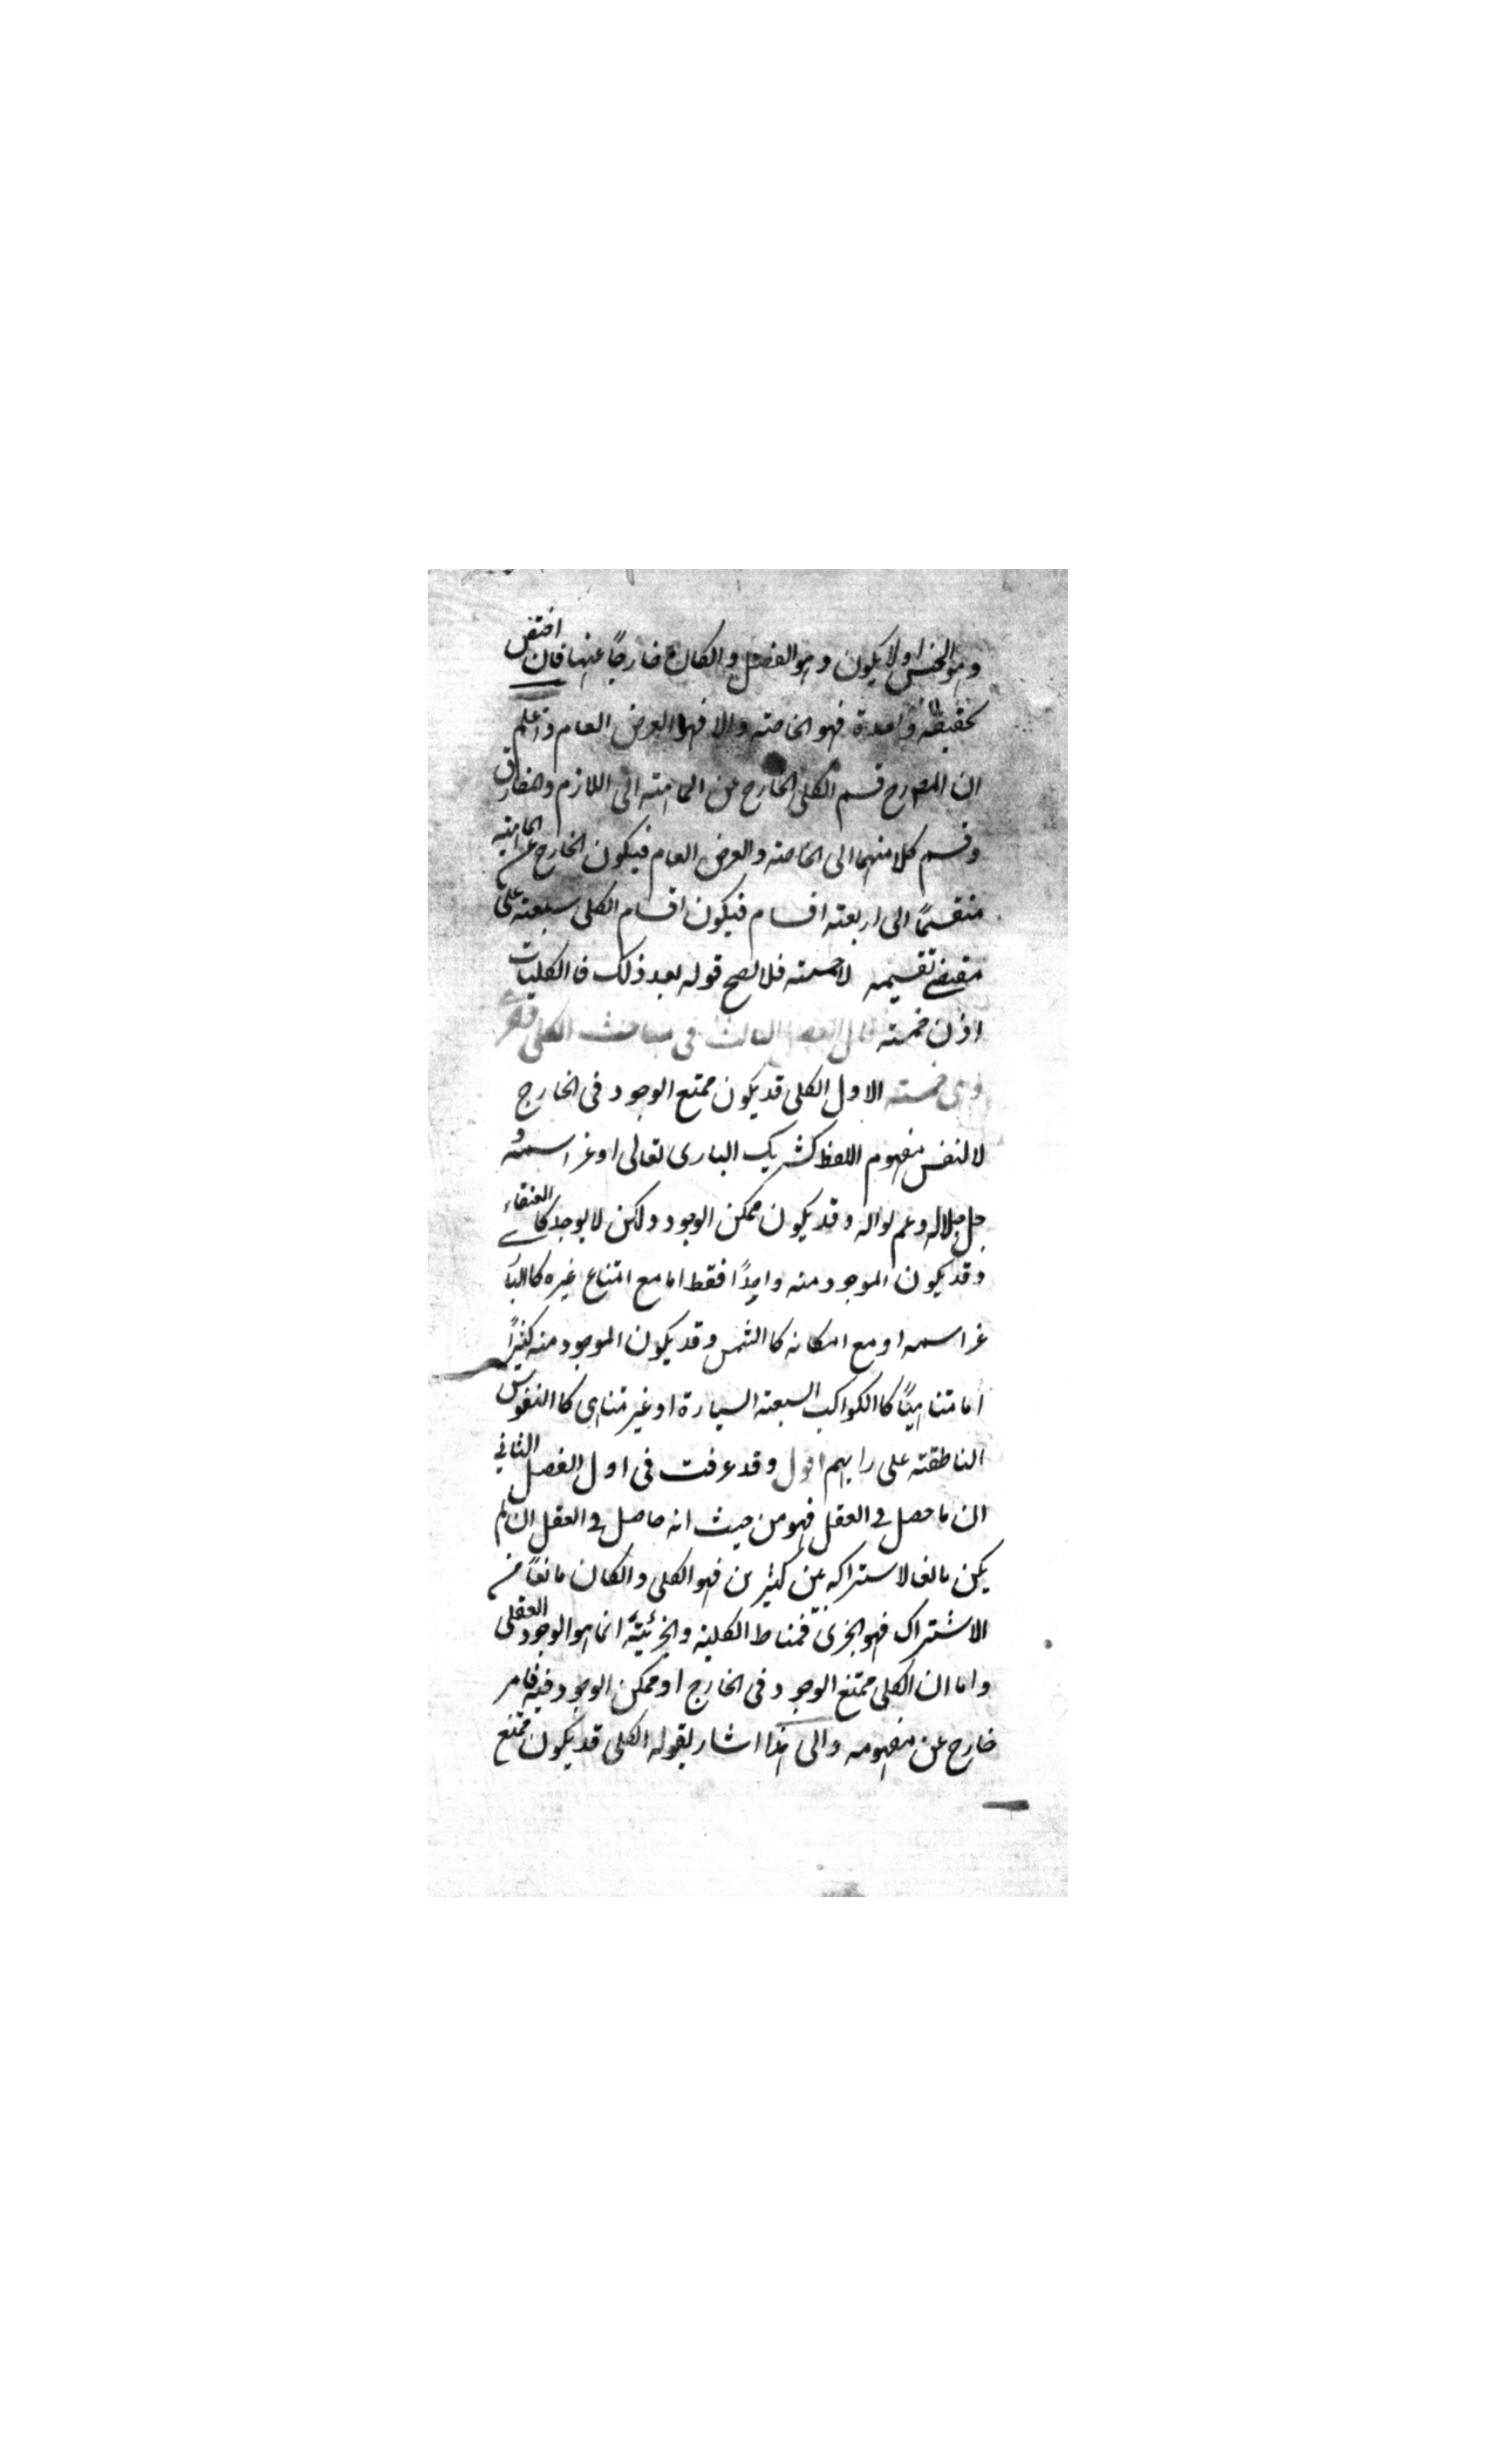 وهو الجنس اولا يكون وهو الفصل والكان خارجا عنها فان اختص
بحقيقة واحدة فهو الخاصته والا فهو العرض العام واعلم
ان المصرح قسم الكلى الخارج عن الماهيته الى اللازم والمفارق
وقسم كلا منهما الى الخاصته والعرض العام فيكون الخارج عن الماهيته
منقسمًا الى اربعته اقسام فيكون اقسام الكلى سبعته على
مقتضى تقسيمه لاخمسته فلا لصح قوله بعد ذلك فا الكليات
اذن خمسته قال الفصل الثالث فى مباحث الكلى والجزئي
وهى خمسته الاول الكلى قد يكون ممتنع الوجود فى الخارج
لا لنفس مفهوم اللفظ كشريك البارى تعالى اوعز اسمه و
جل جلاله وعم نواله وقد يكون ممكن الوجود ولكن لا يوجد كا العنقاء
وقد يكون الموجود منه واحدًا فقط اما مع امتناع غيره كا البا
عز اسمه او مع امكانه كا الشمس وقد يكون الموجود منه كثيرًا
اما متناهيًا كا الكواكب السبعته السيارة او غير متناهى كا النفوس
الناطقته على رايهم اقول وقد عرفت فى اول الفصل الثاني
ان ما حصل في العقل فهو من حيث انه حاصل في العقل ان لم
يكن مانعا لاشتراكه عن كثيرين فهو الكلى والكان مانعًا من
الاشتراك فهو الجزئى فمناط الكليته والجزئيته انما هو الوجود العقلى
واما ان الكلى ممتنع الوجود فى الخارج او ممكن الوجود فيه فامر
خارج عن مفهومه والى هذا اشار بقوله الكلى قد يكون ممتنع